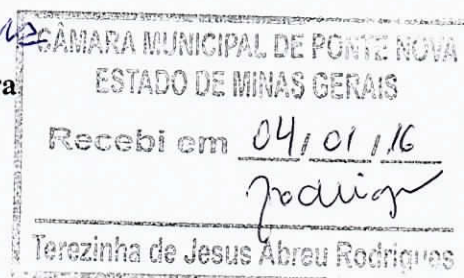 CÂMARA MUNICIPAL DE PONTE NOVA
ra
ESTADO DE MINAS GERAIS
Recebi em 04/01/16
Terezinha de Jesus Abreu Rodrigues